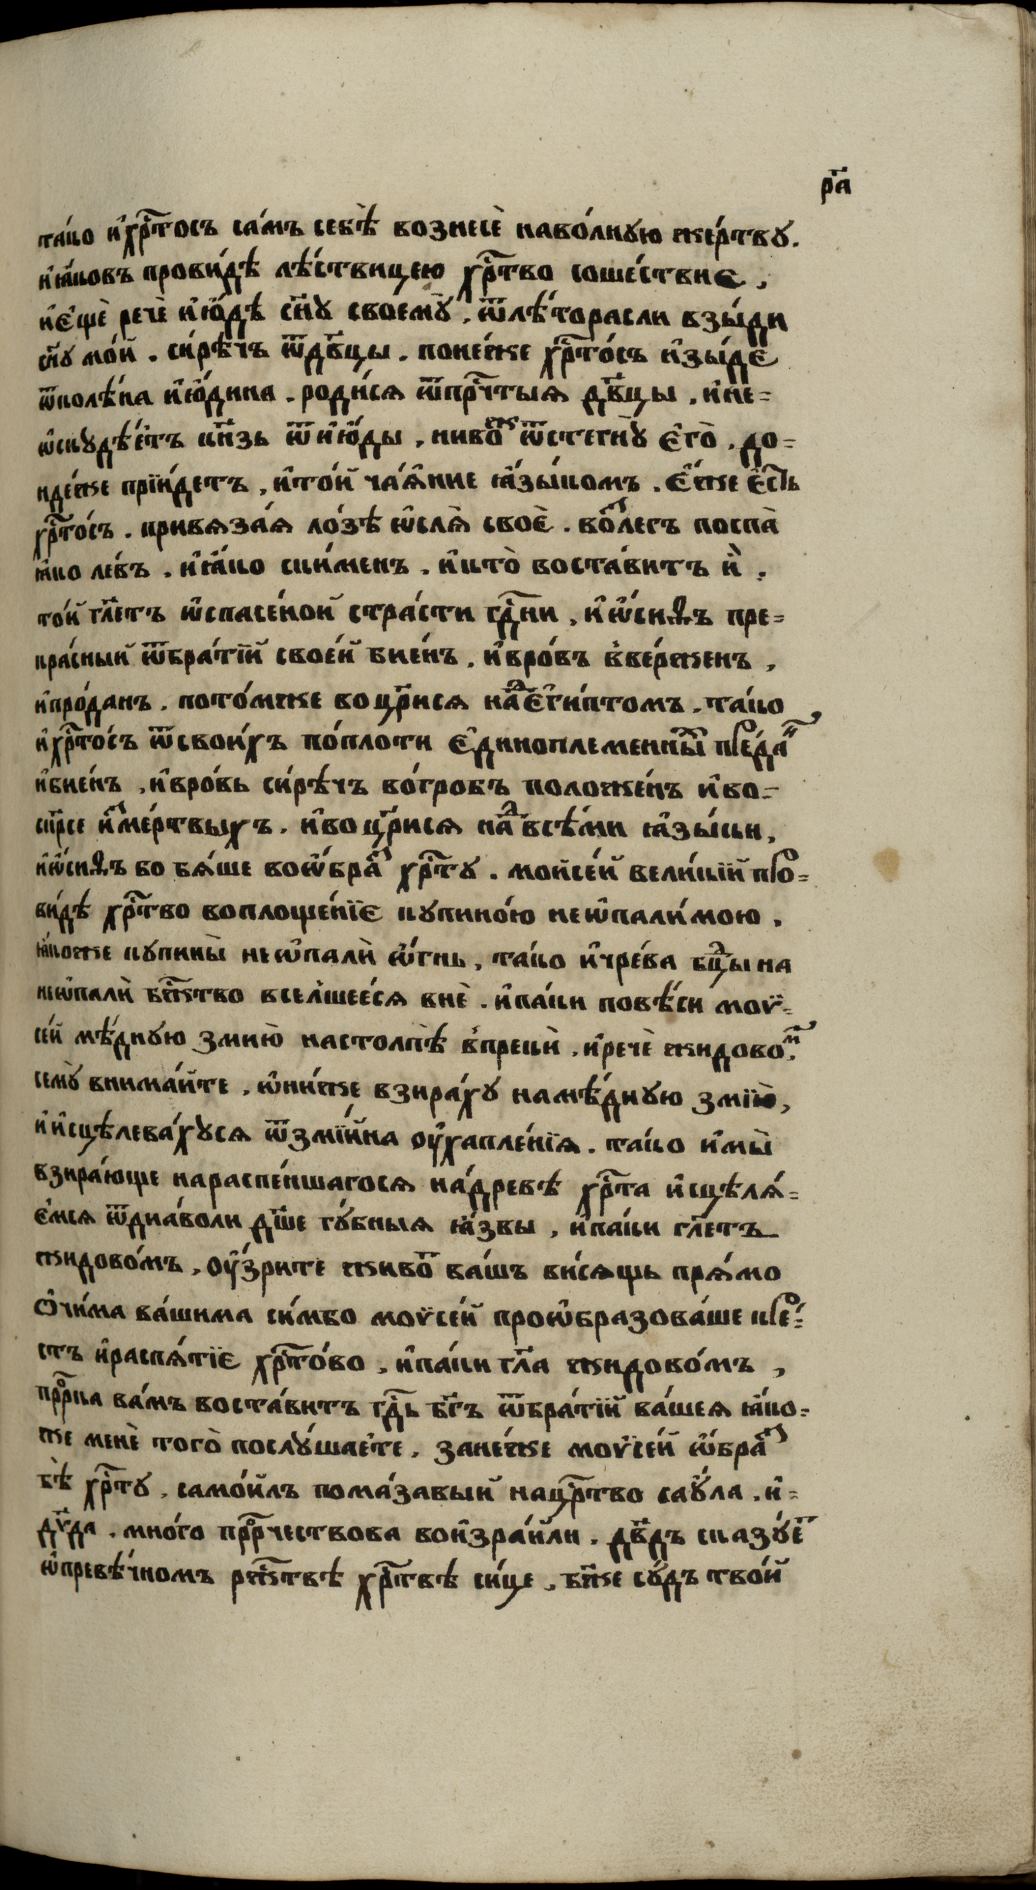 р҃а
та́ко и҆хр҇то́съ са́мъ себѣ̀ вознесѐ наво́лную же́ртву.
иꙗ҆́ковъ прови́дѣ лѣ́ствицею хр҇тво соше́ствиє,
и҆єщѐ речѐ и҆ю҆́дѣ сн҃у своемꙋ̀, ѿлѣ́торасли взы́ди
сн҃у мо́й. си́рѣчъ ѿдв҃цы. поне́же хр҇то́съ и҆зы́дє
ѿколѣ́на и҆ю҆́дина. роди́ся ѿпрч҇тыя дв҃цы, и҆не-
ѡ҆скꙋдѣ́етъ кн҃зь ѿию҆́ды, нивож ѿстегнꙋ̀ є҆го̀. до-
нде́же прїи́детъ, и҆то́й ча́яние ꙗ҆зы́комъ. є҆́же є҆́сть
хр҇то́съ. привяза́я ло́зѣ ѡ҆сля̀ своѐ. возлегъ поспа̀
ꙗ҆́ко ле́въ. и҆ꙗ҆́ко ски́менъ. и҆кто̀ воста́витъ и҆̀,
то́й гл҃етъ ѡ҆спасе́ной стра́сти гд҇ни, и҆ѡ҆́сиѳъ пре-
кра́сный ѿбра́тїй свое́й бие́нъ. и҆вро́въ вве́рженъ,
и҆про́данъ. пото́мже воцр҃ися надє҆ги́птомъ. та́ко
и҆хр҇то́съ ѿсвои́хъ по́плоти є҆диноплеменных преда́н
и҆бие́нъ, и҆вро́вь си́рѣчъ во́гробъ положе́нъ и҆во-
скр҃се и҆зме́ртвыхъ. и҆воцр҃ися надвсѣ́ми ꙗ҆зы́ки,
и҆ѡ҆́сиѳъ бо бя́ше воѡ҆́браз хр҇ту. мойсе́й вели́кїй про-
ви́дѣ хр҇тво воплоще́нїє купино́ю неѡ҆пали́мою.
ꙗ҆́коже купины̀ неѡ҆палѝ ѡ҆́гнь, та́ко и҆чре́ва бц҃ы на
неѡ҆палѝ бж҇тво всели́шееся внѐ. и҆па́ки повѣ́си моѵ̈-
се́й мѣ́дную змию̀ настолпѣ̀ впрекѝ. и҆речѐ жидовом.
семꙋ̀ внима́йте, ѡ҆ни́же взира́ху намѣ́дную змїю̀,
и҆исцѣлева́хуся ѿзмїи́на ᲂу҆хапле́нїя. та́ко и҆мы̀
взира́юще нараспе́ншагося на́древѣ хр҇та и҆сцѣля́-
є҆мся ѿдиа́воли дш҃е гу́бныя ꙗ҆́звы, и҆па́ки гл҃етъ
жидово́мъ, ᲂу҆́зрите живот ва́шъ ви́сящь пря́мо
ѻ҆чи́ма ва́шима си́мбо моѵ̈се́й проѡ҆бразова́ше кре́-
стъ и҆распя́тїє хр҇то́во, и҆па́ки гл҃а жидово́мъ,
прⷪ҇рка ва́мъ воста́витъ гд҇ь бг҃ъ ѿбра́тїй ва́шея ꙗ҆́ко-
же менѐ того̀ послу́шаете, зане́же моѵ̈се́й ѡ҆́браз
бѣ̀ хр҇ту, само́йлъ пома́завый нацр҇тво сау́ла, и҆-
дв҃да. мно́го прⷪ҇рчествова воизра́или. дв҃дъ сказу́ет
ѡ҆преве́чномъ рж҇твѣ хр҇твѣ си́це, бж҃е сꙋ́дъ тво́й